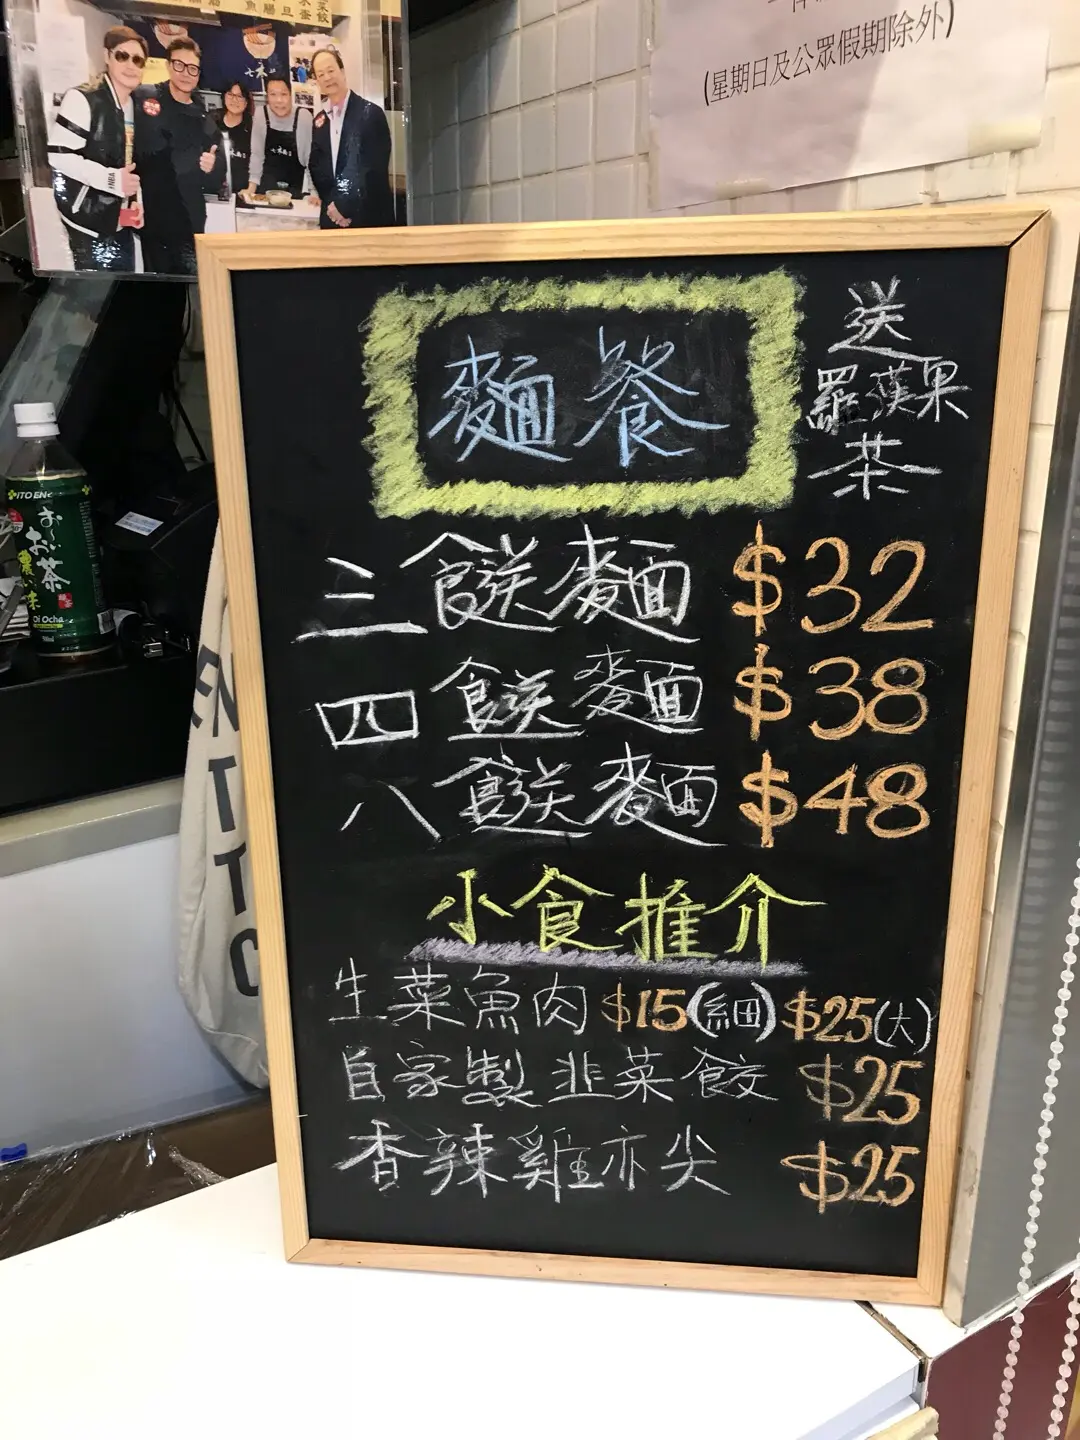 魚腸旦蛋餃
七木
(星期日及公眾假期除外)
麵餐
送
羅漢果
茶
三餸麵 $32
四餸麵 $38
八餸麵 $48
小食推介
生菜魚肉 $15(細) $25(大)
自家製韭菜餃 $25
香辣雞亦尖 $25
ITO EN
お〜い
お茶
濃い味
Oi Ocha